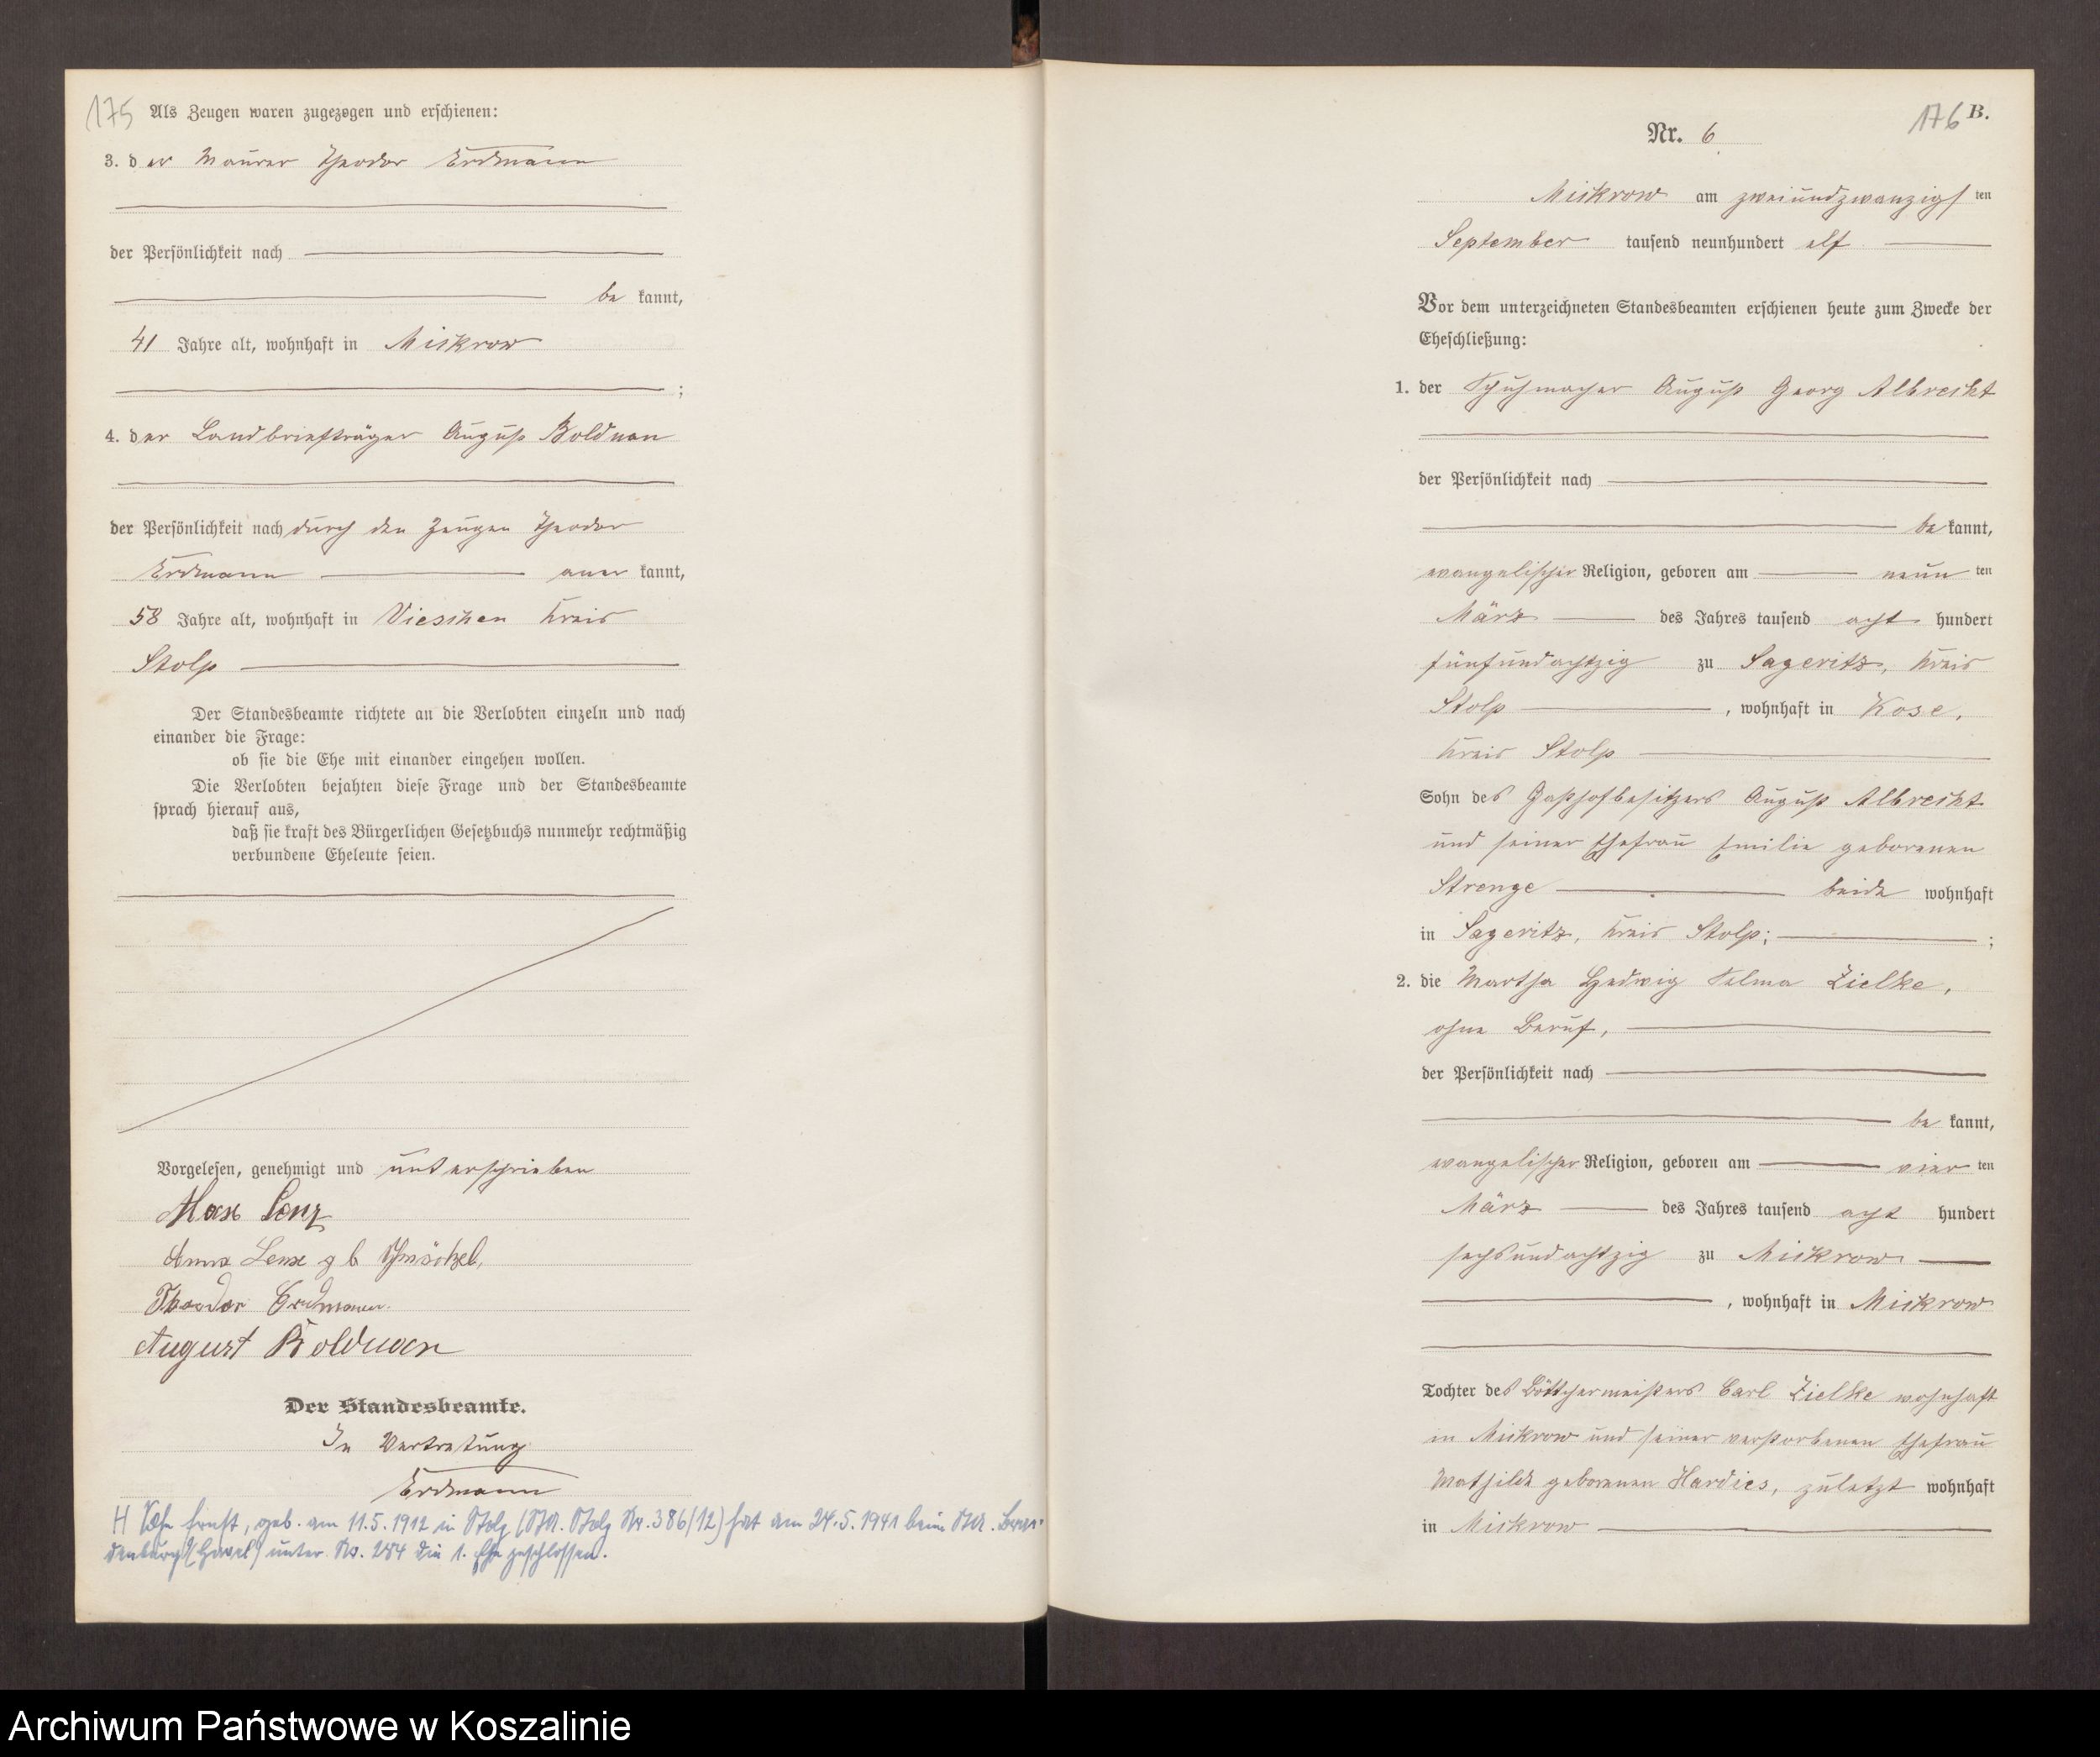 175 Als Zeugen waren zugezogen und erschienen:
3. der Maurer Theodor Erdmann
der Persönlichkeit nach
be kannt,
41 Jahre alt, wohnhaft in Mickrow
;
4. der Landbriefträger August Bolduan
der Persönlichkeit nach durch den Zeugen Theodor
Erdmann aner kannt,
58 Jahre alt, wohnhaft in Viessken Kreis
Stolp
Der Standesbeamte richtete an die Verlobten einzeln und nach
einander die Frage:
ob sie die Ehe mit einander eingehen wollen.
Die Verlobten bejahten diese Frage und der Standesbeamte
sprach hierauf aus,
daß sie kraft des Bürgerlichen Gesetzbuchs nunmehr rechtmäßig
verbundene Eheleute seien.
Vorgelesen, genehmigt und unterschrieben
Max Lenz
Anna Lenz gb
Theodor Erdmann.
August Bolduan
Der Standesbeamte.
In Vertretung
Erdmann
H Sohn Ernst, geb. am 11.5.1912 in Stolp (StA. Stolp Nr. 386/12) hat am 24.5.1941 beim StA. Bran-
denburg (Havel) unter Nr. 284 die 1. Ehe geschlossen.
176 B.
Nr. 6
Mickrow am zweiundzwanzigsten
September tausend neunhundert elf
Vor dem unterzeichneten Standesbeamten erschienen heute zum Zwecke der
Eheschließung:
1. der Schuhmacher August Georg Albrecht
der Persönlichkeit nach
be kannt,
evangelischer Religion, geboren am neun ten
März des Jahres tausend acht hundert
fünfundachtzig zu Sageritz, Kreis
Stolp, wohnhaft in Kose,
Kreis Stolp
Sohn des Gasthofbesitzers August Albrecht
und seiner Ehefrau Emilie geborenen
Strenge beide wohnhaft
in Sageritz, Kreis Stolp; ;
2. die Martha Hedwig Selma Zielke,
ohne Beruf,
der Persönlichkeit nach
be kannt,
evangelischer Religion, geboren am vier ten
März des Jahres tausend acht hundert
sechsundachtzig zu Mickrow
, wohnhaft in Mickrow
Tochter des Böttchermeisters Carl Zielke wohnhaft
in Mickrow und seiner verstorbenen Ehefrau
Mathilde geborenen Hardies, zuletzt wohnhaft
in Mickrow
Archiwum Państwowe w Koszalinie